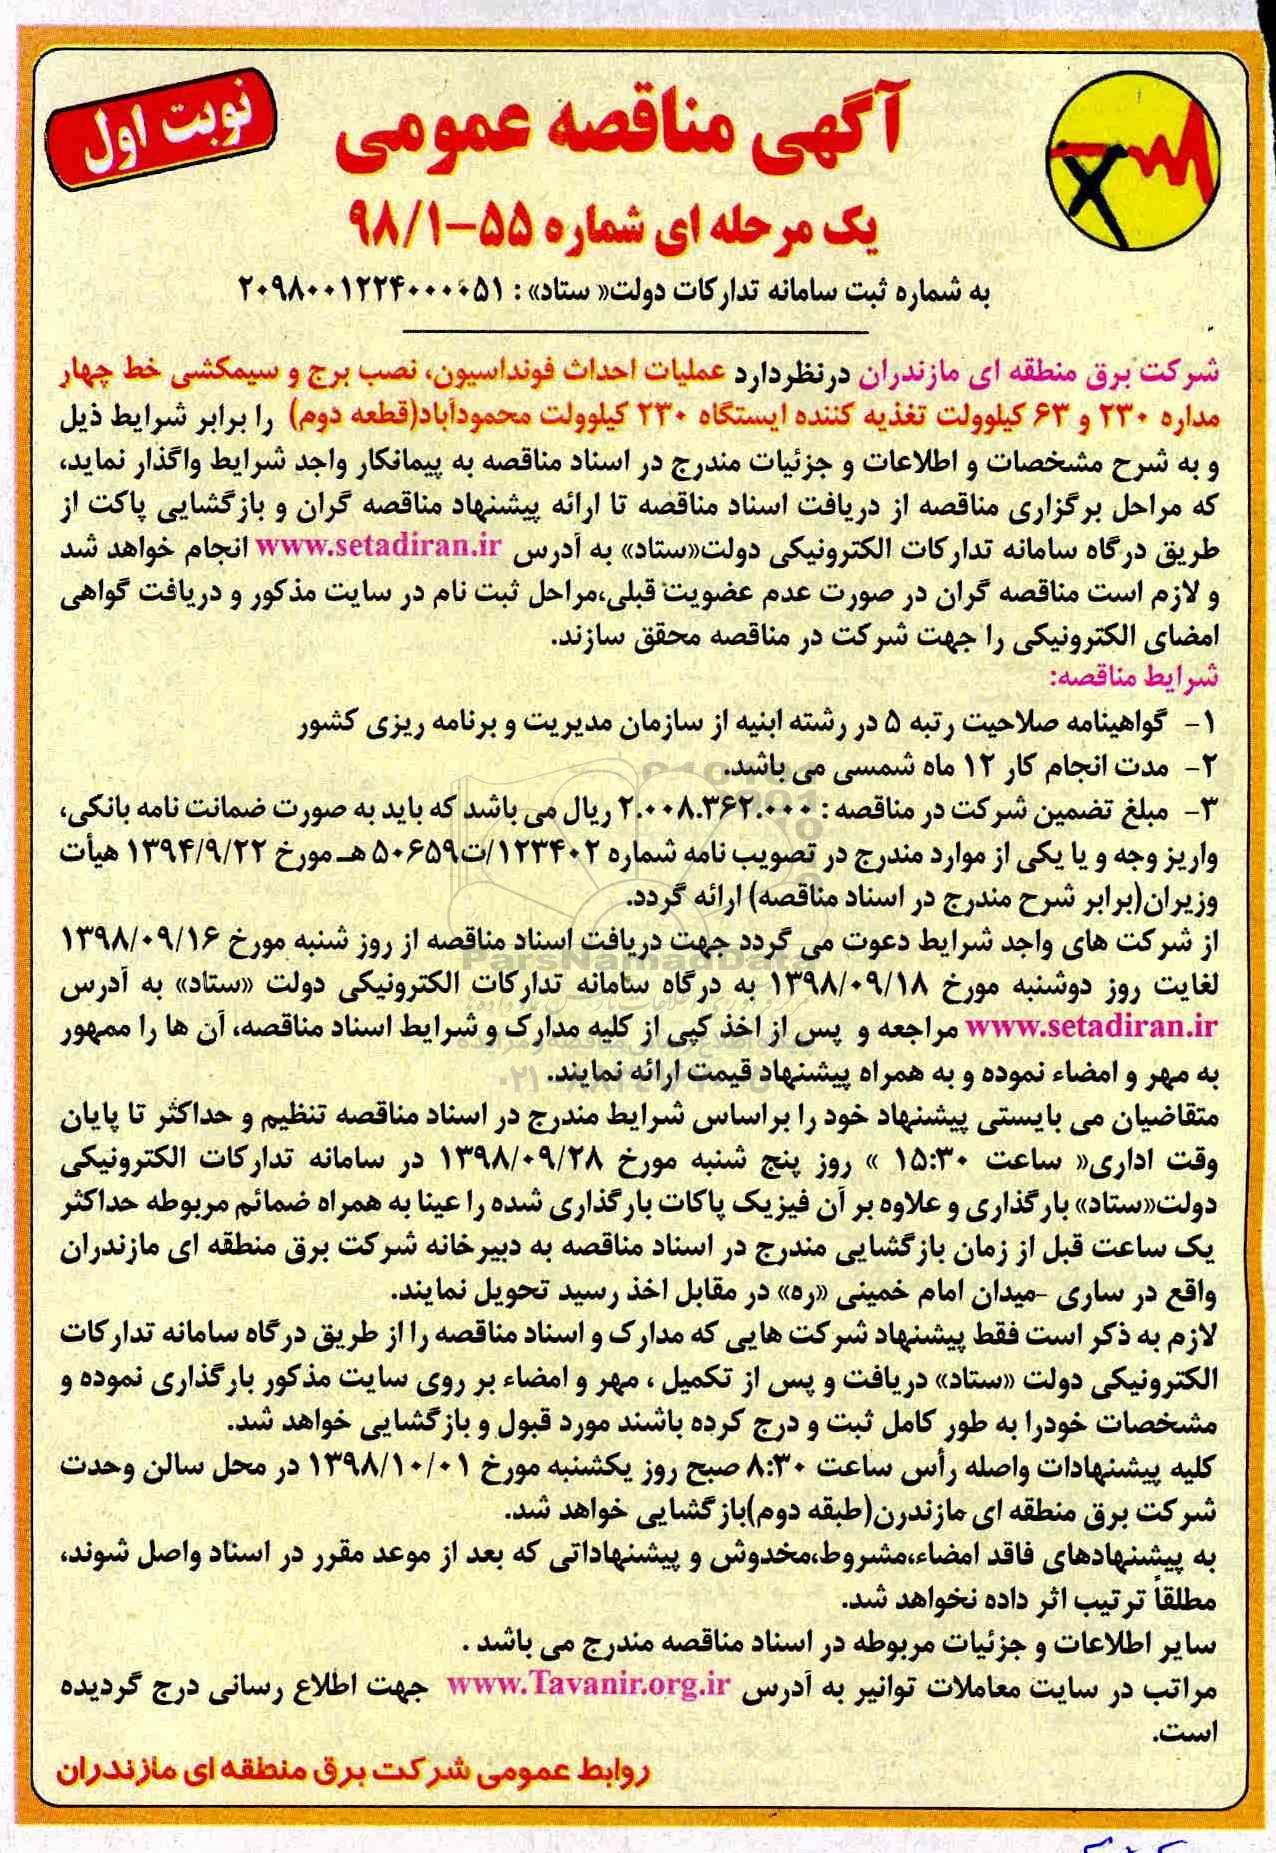 نوبت اول
آگهی مناقصه عمومی
یک مرحله ای شماره ۵۵-۹۸/۱
به شماره ثبت سامانه تدارکات دولت« ستاد» : ۲۰۹۸۰۰۱۲۲۴۰۰۰۰۵۱
شرکت برق منطقه ای مازندران درنظردارد عملیات احداث فونداسیون، نصب برج و سیمکشی خط چهار
مداره ۲۳۰ و ۶۳ کیلوولت تغذیه کننده ایستگاه ۲۳۰ کیلوولت محمودآباد(قطعه دوم) را برابر شرایط ذیل
و به شرح مشخصات و اطلاعات و جزئیات مندرج در اسناد مناقصه به پیمانکار واجد شرایط واگذار نماید،
که مراحل برگزاری مناقصه از دریافت اسناد مناقصه تا ارائه پیشنهاد مناقصه گران و بازگشایی پاکت از
طریق درگاه سامانه تدارکات الکترونیکی دولت«ستاد» به آدرس www.setadiran.ir انجام خواهد شد
و لازم است مناقصه گران در صورت عدم عضویت قبلی،مراحل ثبت نام در سایت مذکور و دریافت گواهی
امضای الکترونیکی را جهت شرکت در مناقصه محقق سازند.
شرایط مناقصه:
۱- گواهینامه صلاحیت رتبه ۵ در رشته ابنیه از سازمان مدیریت و برنامه ریزی کشور
۲- مدت انجام کار ۱۲ ماه شمسی می باشد.
۳- مبلغ تضمین شرکت در مناقصه : ۲.۰۰۸.۳۶۲.۰۰۰ ریال می باشد که باید به صورت ضمانت نامه بانکی،
واریز وجه و یا یکی از موارد مندرج در تصویب نامه شماره ۱۲۳۴۰۲/ت۵۰۶۵۹ هـ مورخ ۱۳۹۴/۹/۲۲ هیأت
وزیران(برابر شرح مندرج در اسناد مناقصه) ارائه گردد.
از شرکت های واجد شرایط دعوت می گردد جهت دریافت اسناد مناقصه از روز شنبه مورخ ۱۳۹۸/۰۹/۱۶
لغایت روز دوشنبه مورخ ۱۳۹۸/۰۹/۱۸ به درگاه سامانه تدارکات الکترونیکی دولت «ستاد» به آدرس
www.setadiran.ir مراجعه و پس از اخذ کپی از کلیه مدارک و شرایط اسناد مناقصه، آن ها را ممهور
به مهر و امضاء نموده و به همراه پیشنهاد قیمت ارائه نمایند.
متقاضیان می بایستی پیشنهاد خود را براساس شرایط مندرج در اسناد مناقصه تنظیم و حداکثر تا پایان
وقت اداری« ساعت ۱۵:۳۰ » روز پنج شنبه مورخ ۱۳۹۸/۰۹/۲۸ در سامانه تدارکات الکترونیکی
دولت«ستاد» بارگذاری و علاوه بر آن فیزیک پاکات بارگذاری شده را عینا به همراه ضمائم مربوطه حداکثر
یک ساعت قبل از زمان بازگشایی مندرج در اسناد مناقصه به دبیرخانه شرکت برق منطقه ای مازندران
واقع در ساری -میدان امام خمینی «ره» در مقابل اخذ رسید تحویل نمایند.
لازم به ذکر است فقط پیشنهاد شرکت هایی که مدارک و اسناد مناقصه را از طریق درگاه سامانه تدارکات
الکترونیکی دولت «ستاد» دریافت و پس از تکمیل ، مهر و امضاء بر روی سایت مذکور بارگذاری نموده و
مشخصات خودرا به طور کامل ثبت و درج کرده باشند مورد قبول و بازگشایی خواهد شد.
کلیه پیشنهادات واصله رأس ساعت ۸:۳۰ صبح روز یکشنبه مورخ ۱۳۹۸/۱۰/۰۱ در محل سالن وحدت
شرکت برق منطقه ای مازندرن(طبقه دوم)بازگشایی خواهد شد.
به پیشنهادهای فاقد امضاء،مشروط،مخدوش و پیشنهاداتی که بعد از موعد مقرر در اسناد واصل شوند،
مطلقاً ترتیب اثر داده نخواهد شد.
سایر اطلاعات و جزئیات مربوطه در اسناد مناقصه مندرج می باشد .
مراتب در سایت معاملات توانیر به آدرس www.Tavanir.org.ir جهت اطلاع رسانی درج گردیده
است.
روابط عمومی شرکت برق منطقه ای مازندران
ParsNamadData